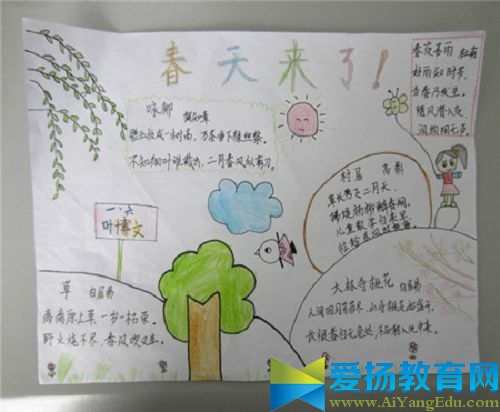 春天来了!
咏柳 贺知章
碧玉妆成一树高,万条垂下绿丝绦。
不知细叶谁裁出,二月春风似剪刀。
春夜喜雨 杜甫
好雨知时节,
当春乃发生。
随风潜入夜,
润物细无声。
村居 高鼎
草长莺飞二月天,
拂堤杨柳醉春烟。
儿童散学归来早
一.六
叶博文
草 白居易
离离原上草,一岁一枯荣。
野火烧不尽,春风吹又生。
大林寺桃花 白居易
人间四月芳菲尽,山寺桃花始盛开。
长恨春归无觅处,不知转入此中来。
爱扬教育网
www.AiYangEdu.com